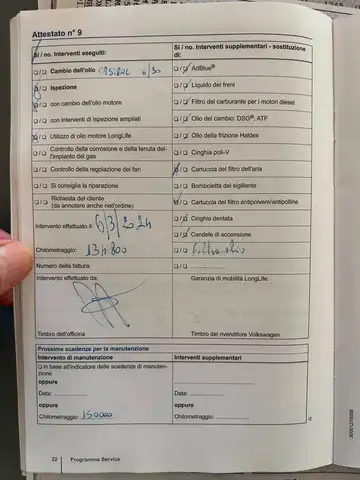 Attestato n° 9
Si / no. Interventi eseguiti:
Cambio dell'olio CASTROL 5/30
Ispezione
con cambio dell'olio motore
con interventi di ispezione ampliati
Utilizzo di olio motore LongLife
Controllo della corrosione e della tenuta dell'impianto del gas
Controllo della regolazione dei fari
Si consiglia la riparazione
Richiesta del cliente
(da annotare anche nell'ordine)
Intervento effettuato il: 6/3/2024
Chilometraggio: 134800
Numero della fattura:
Intervento effettuato da:
Timbro dell'officina
Si / no. Interventi supplementari - sostituzione di:
AdBlue®
Liquido dei freni
Filtro del carburante per i motori diesel
Olio del cambio: DSG®, ATF
Olio della frizione Haldex
Cinghia poli-V
Cartuccia del filtro dell'aria
Bomboletta del sigillante
Cartuccia del filtro antipolvere/antipolline
Cinghia dentata
Candele di accensione
Filtro olio
Garanzia di mobilità LongLife:
Timbro del rivenditore Volkswagen
Prossime scadenze per la manutenzione
Intervento di manutenzione
Interventi supplementari
in base all'indicatore delle scadenze di manutenzione
oppure
Data:
oppure
Chilometraggio: 150000
oppure
Data:
oppure
Chilometraggio:
22 Programma Service